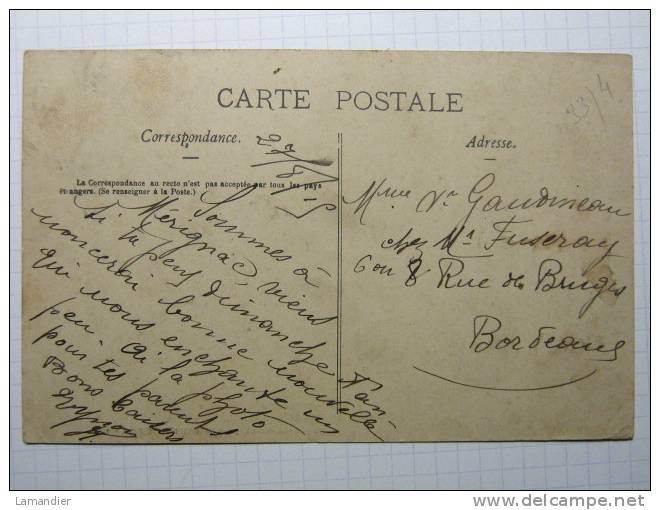 CARTE POSTALE
33/4
Correspondance.
Adresse.
27/8/15
La Correspondance au recto n'est pas acceptée par tous les pays
étrangers. (Se renseigner à la Poste.)
Sommes à
Mérignac, viens
si tu peux dimanche t'an-
noncerai bonne nouvelle
qui nous enchante un
peu. ai la photo
pour tes parents
Bons baisers
Mme Vve Gaudineau
chez Mr Fuseray
6 ou 8 Rue de Bruges
Bordeaux
Lamandier
delcampe.net